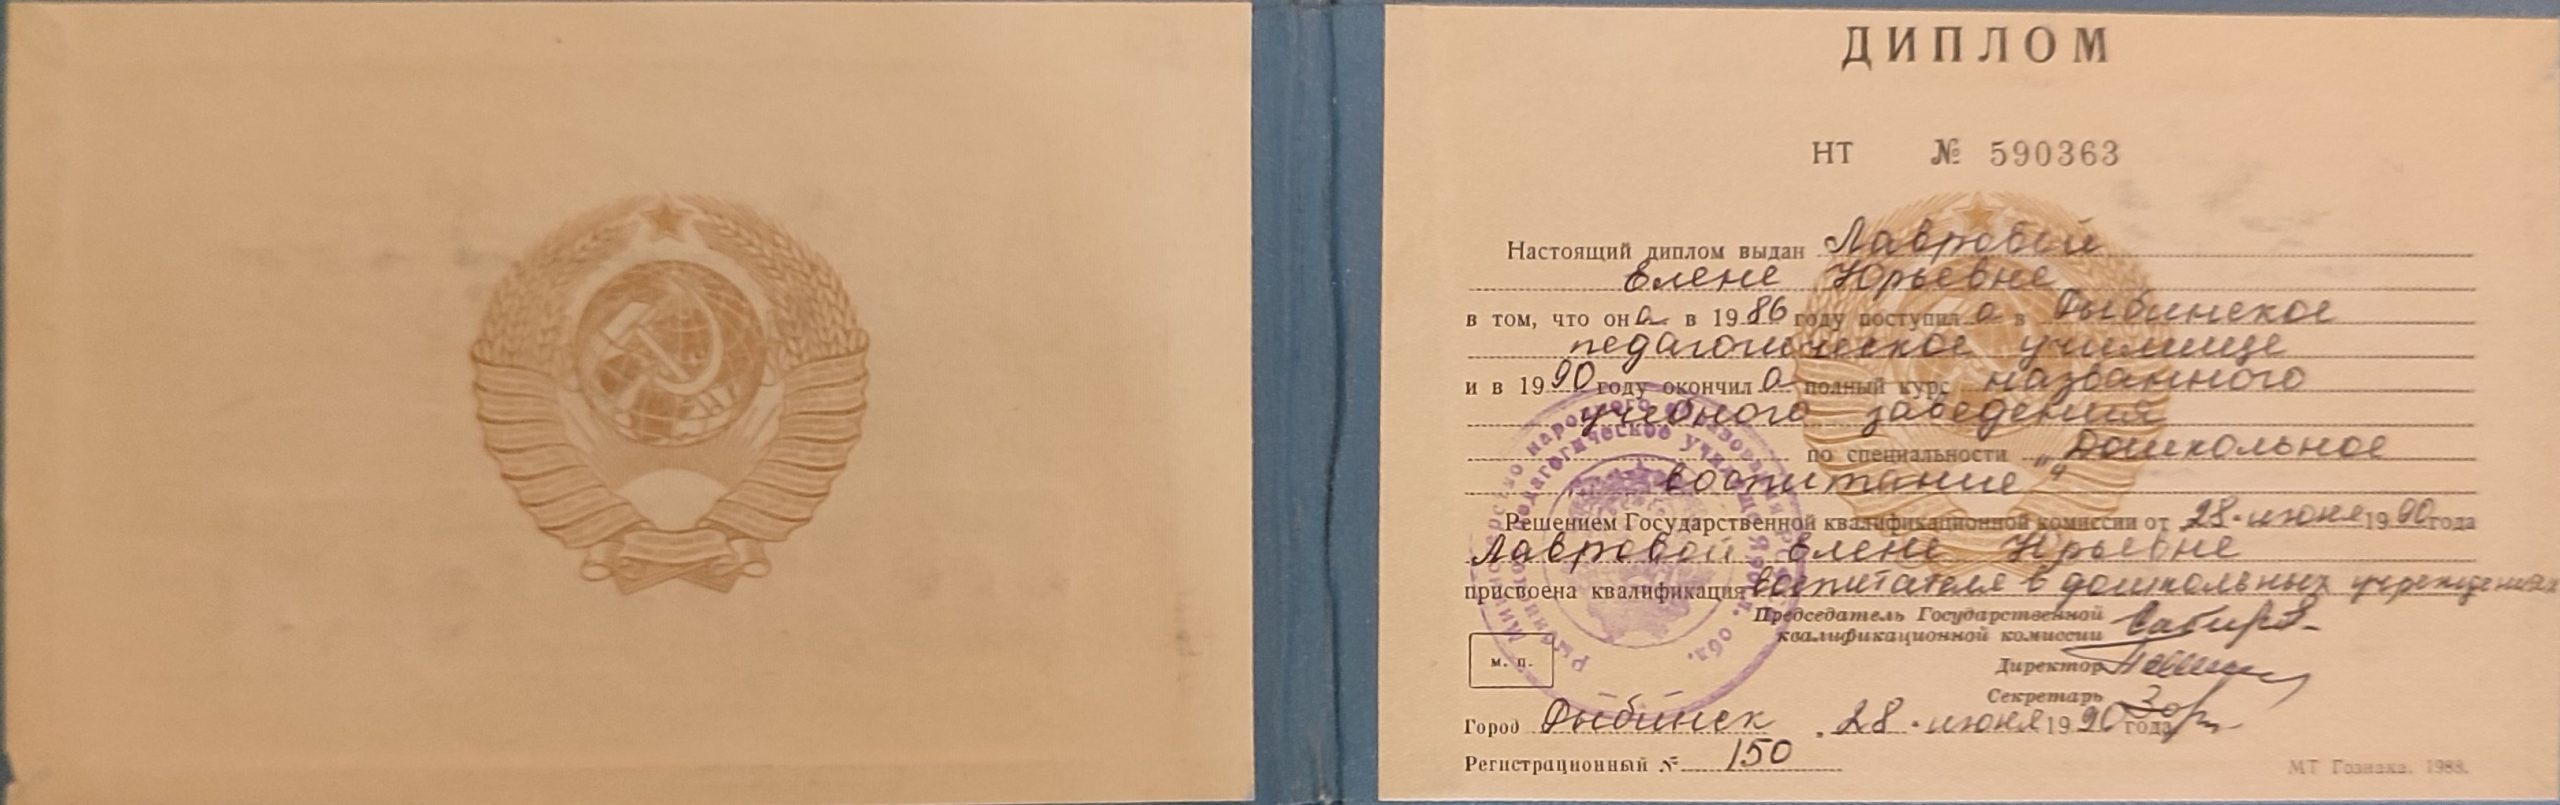 ДИПЛОМ
НТ № 590363
Настоящий диплом выдан Лавровой
Елене Юрьевне
в том, что она в 1986 году поступила в Рыбинское
педагогическое училище
и в 1990 году окончила полный курс названного
учебного заведения
по специальности „Дошкольное
воспитание"
Решением Государственной квалификационной комиссии от 28 июня 1990 года
Лавровой Елене Юрьевне
присвоена квалификация воспитателя в дошкольных учреждениях
Председатель Государственной
квалификационной комиссии
Директор
Секретарь
м. п.
Город Рыбинск, 28 июня 1990 года
Регистрационный № 150
МТ Гознака. 1988.
Министерство народного образования
Рыбинское педагогическое училище Яросл. обл.